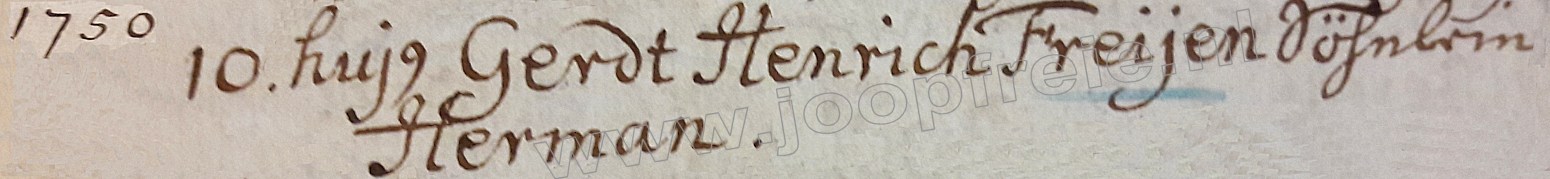 1750
10. hujꝰ Gerdt Henrich Freijen Söhnlein
Herman.
www.joopfreie.nl